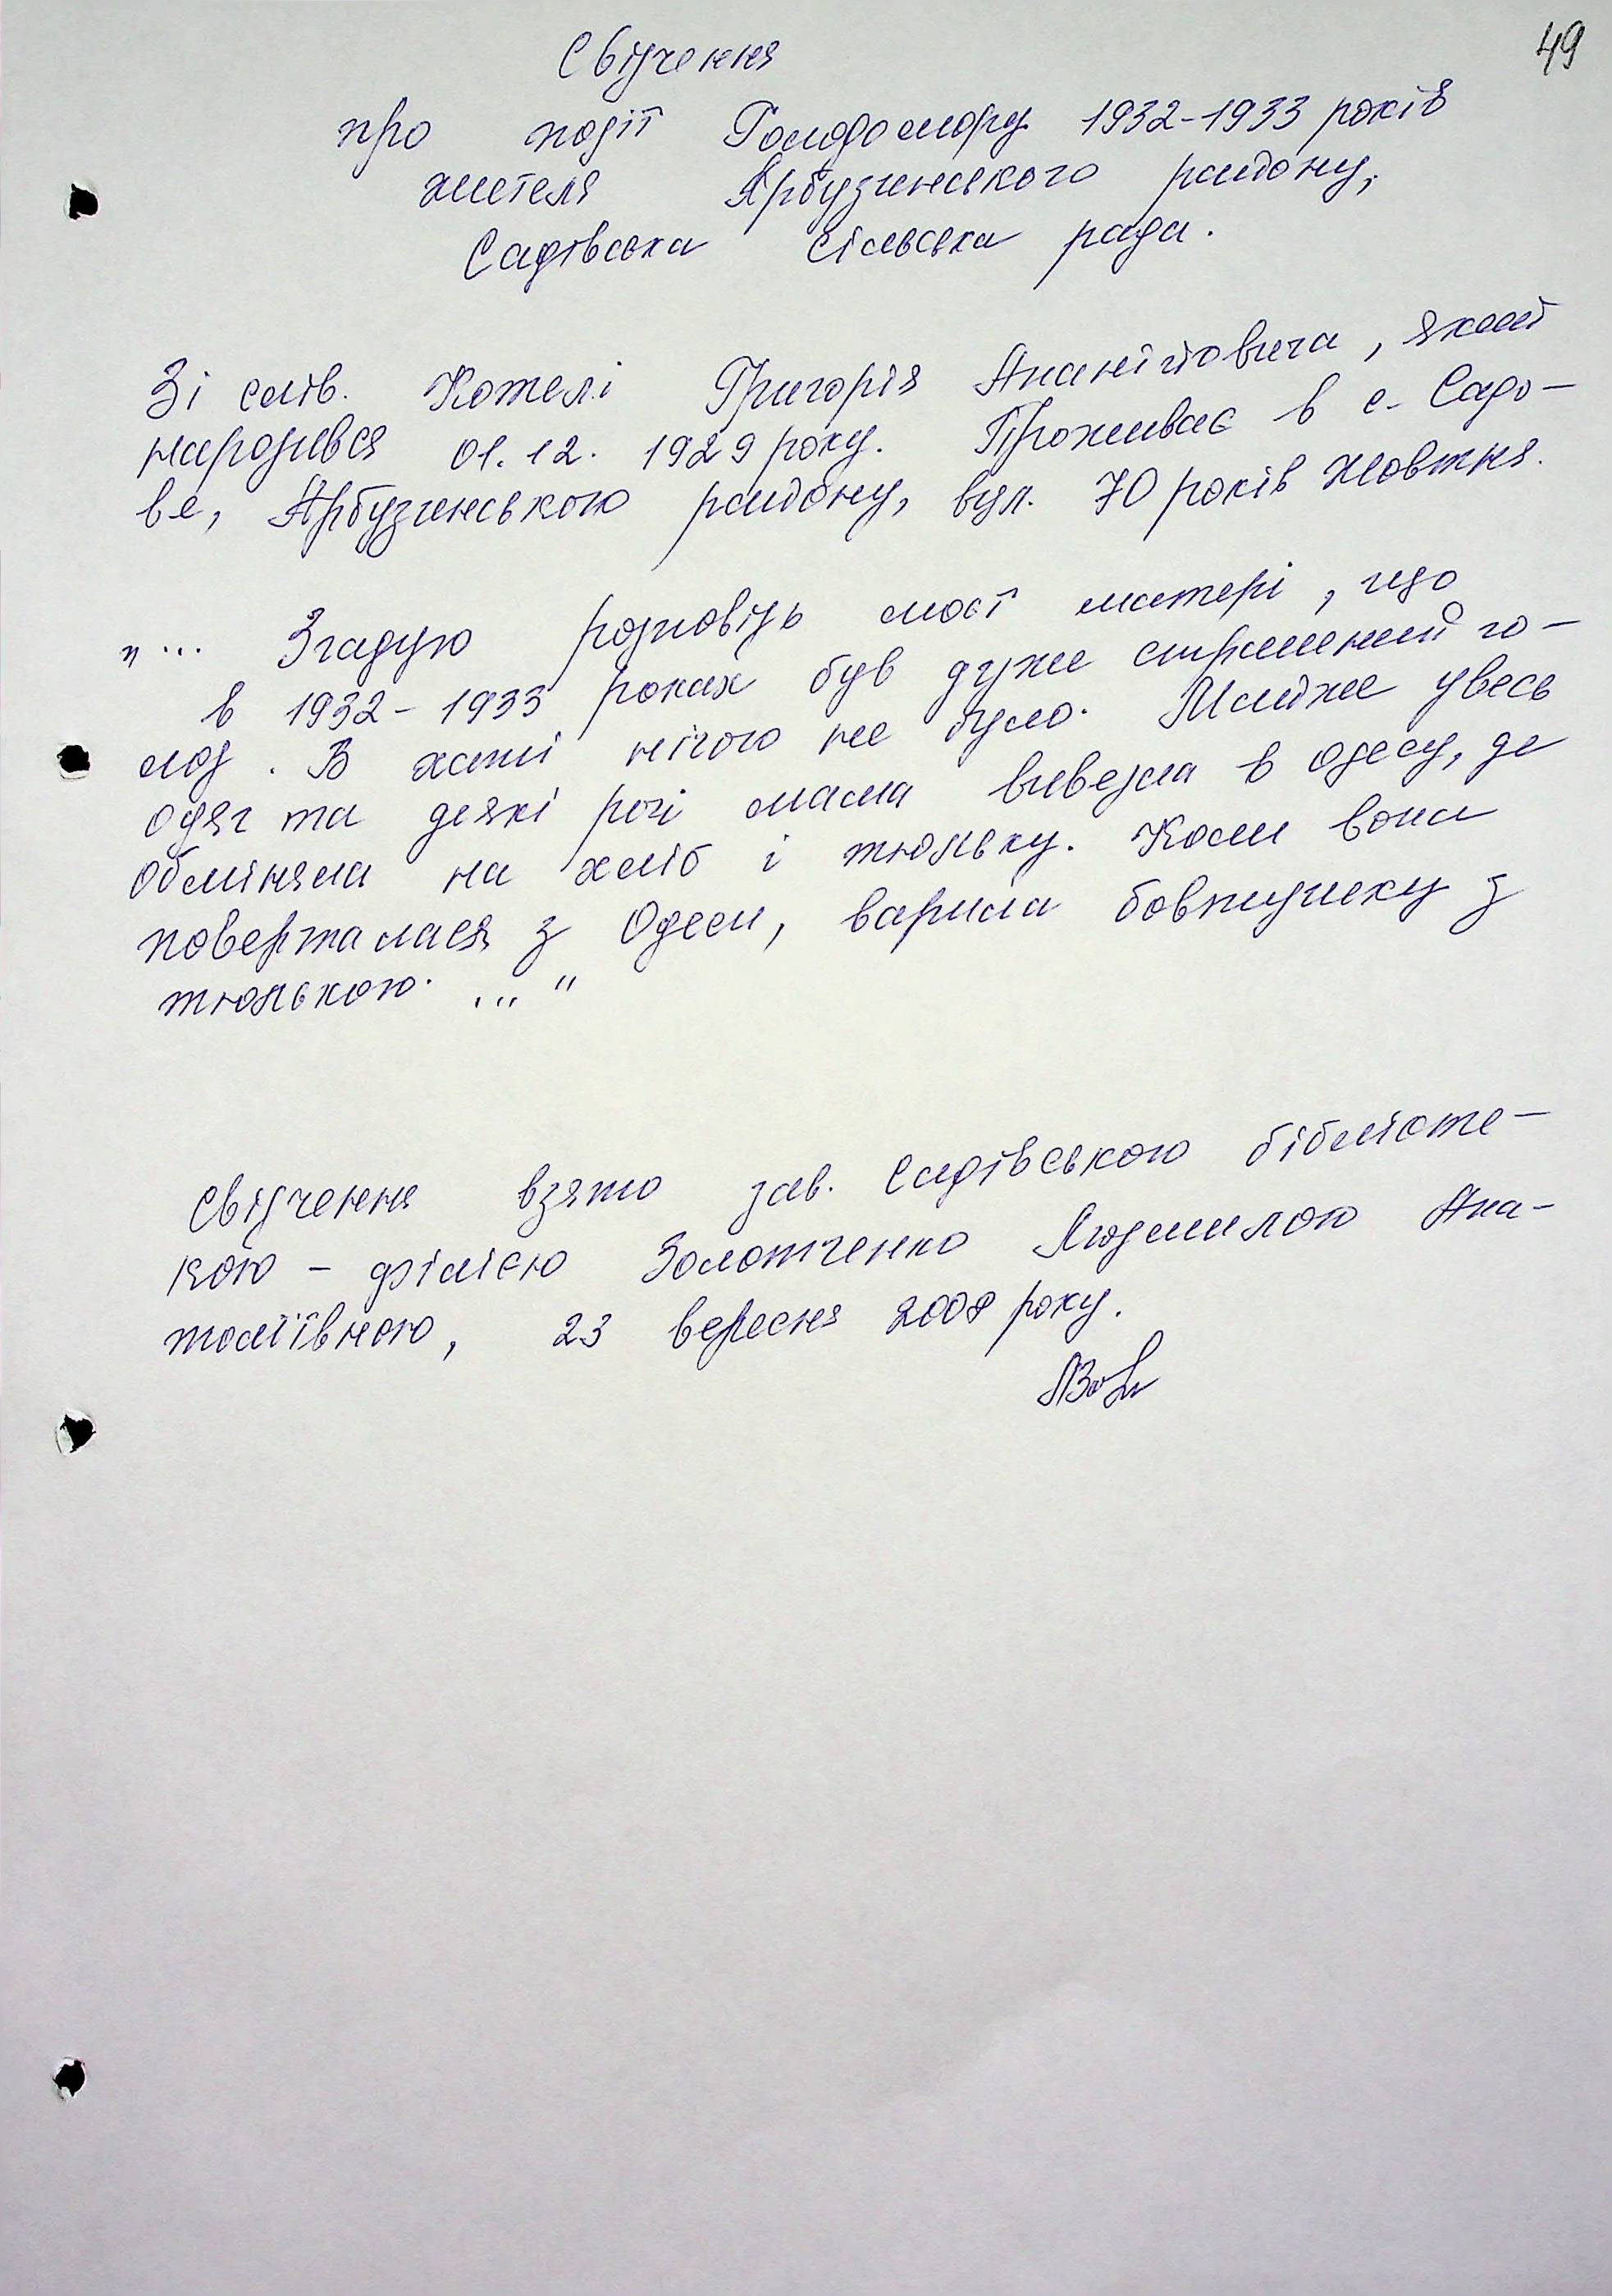 49
Свідчення
про події Голодомору 1932-1933 років
жителя Арбузинського району,
Садівська сільська рада.
Зі слів. Кожелі Григорія Ананійовича, який
народився 01.12. 1929 року. Проживає в с. Садо-
ве, Арбузинського району, вул. 70 років Жовтня.
"... Згадую розповідь моєї матері, що
в 1932-1933 роках був дуже страшний го-
лод. В хаті нічого не було. Майже увесь
одяг та деякі речі мама вивезла в Одесу, де
обміняла на хліб і тюльку. Коли вона
поверталася з Одеси, варила бовтушку з
тюлькою. ..."
Свідчення взято зав. Садівською бібліоте-
кою - філією Золотченко Людмилою Ана-
толіївною, 23 вересня 2008 року.